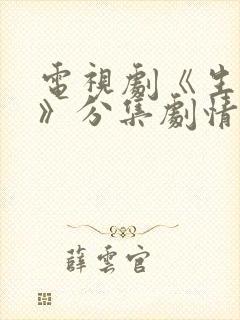 電視劇《生
》分集劇情
薛雲官